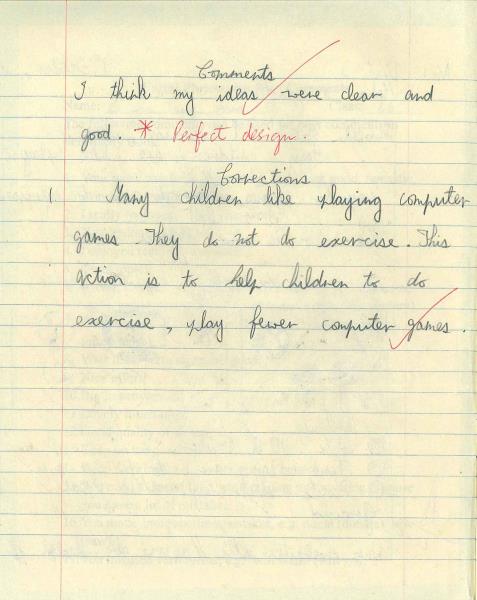 Comments
I think my ideas were clear and
good. * Perfect design.
Corrections
1 Many children like playing computer
games. They do not do exercise. This
action is to help children to do
exercise, play fewer computer games.